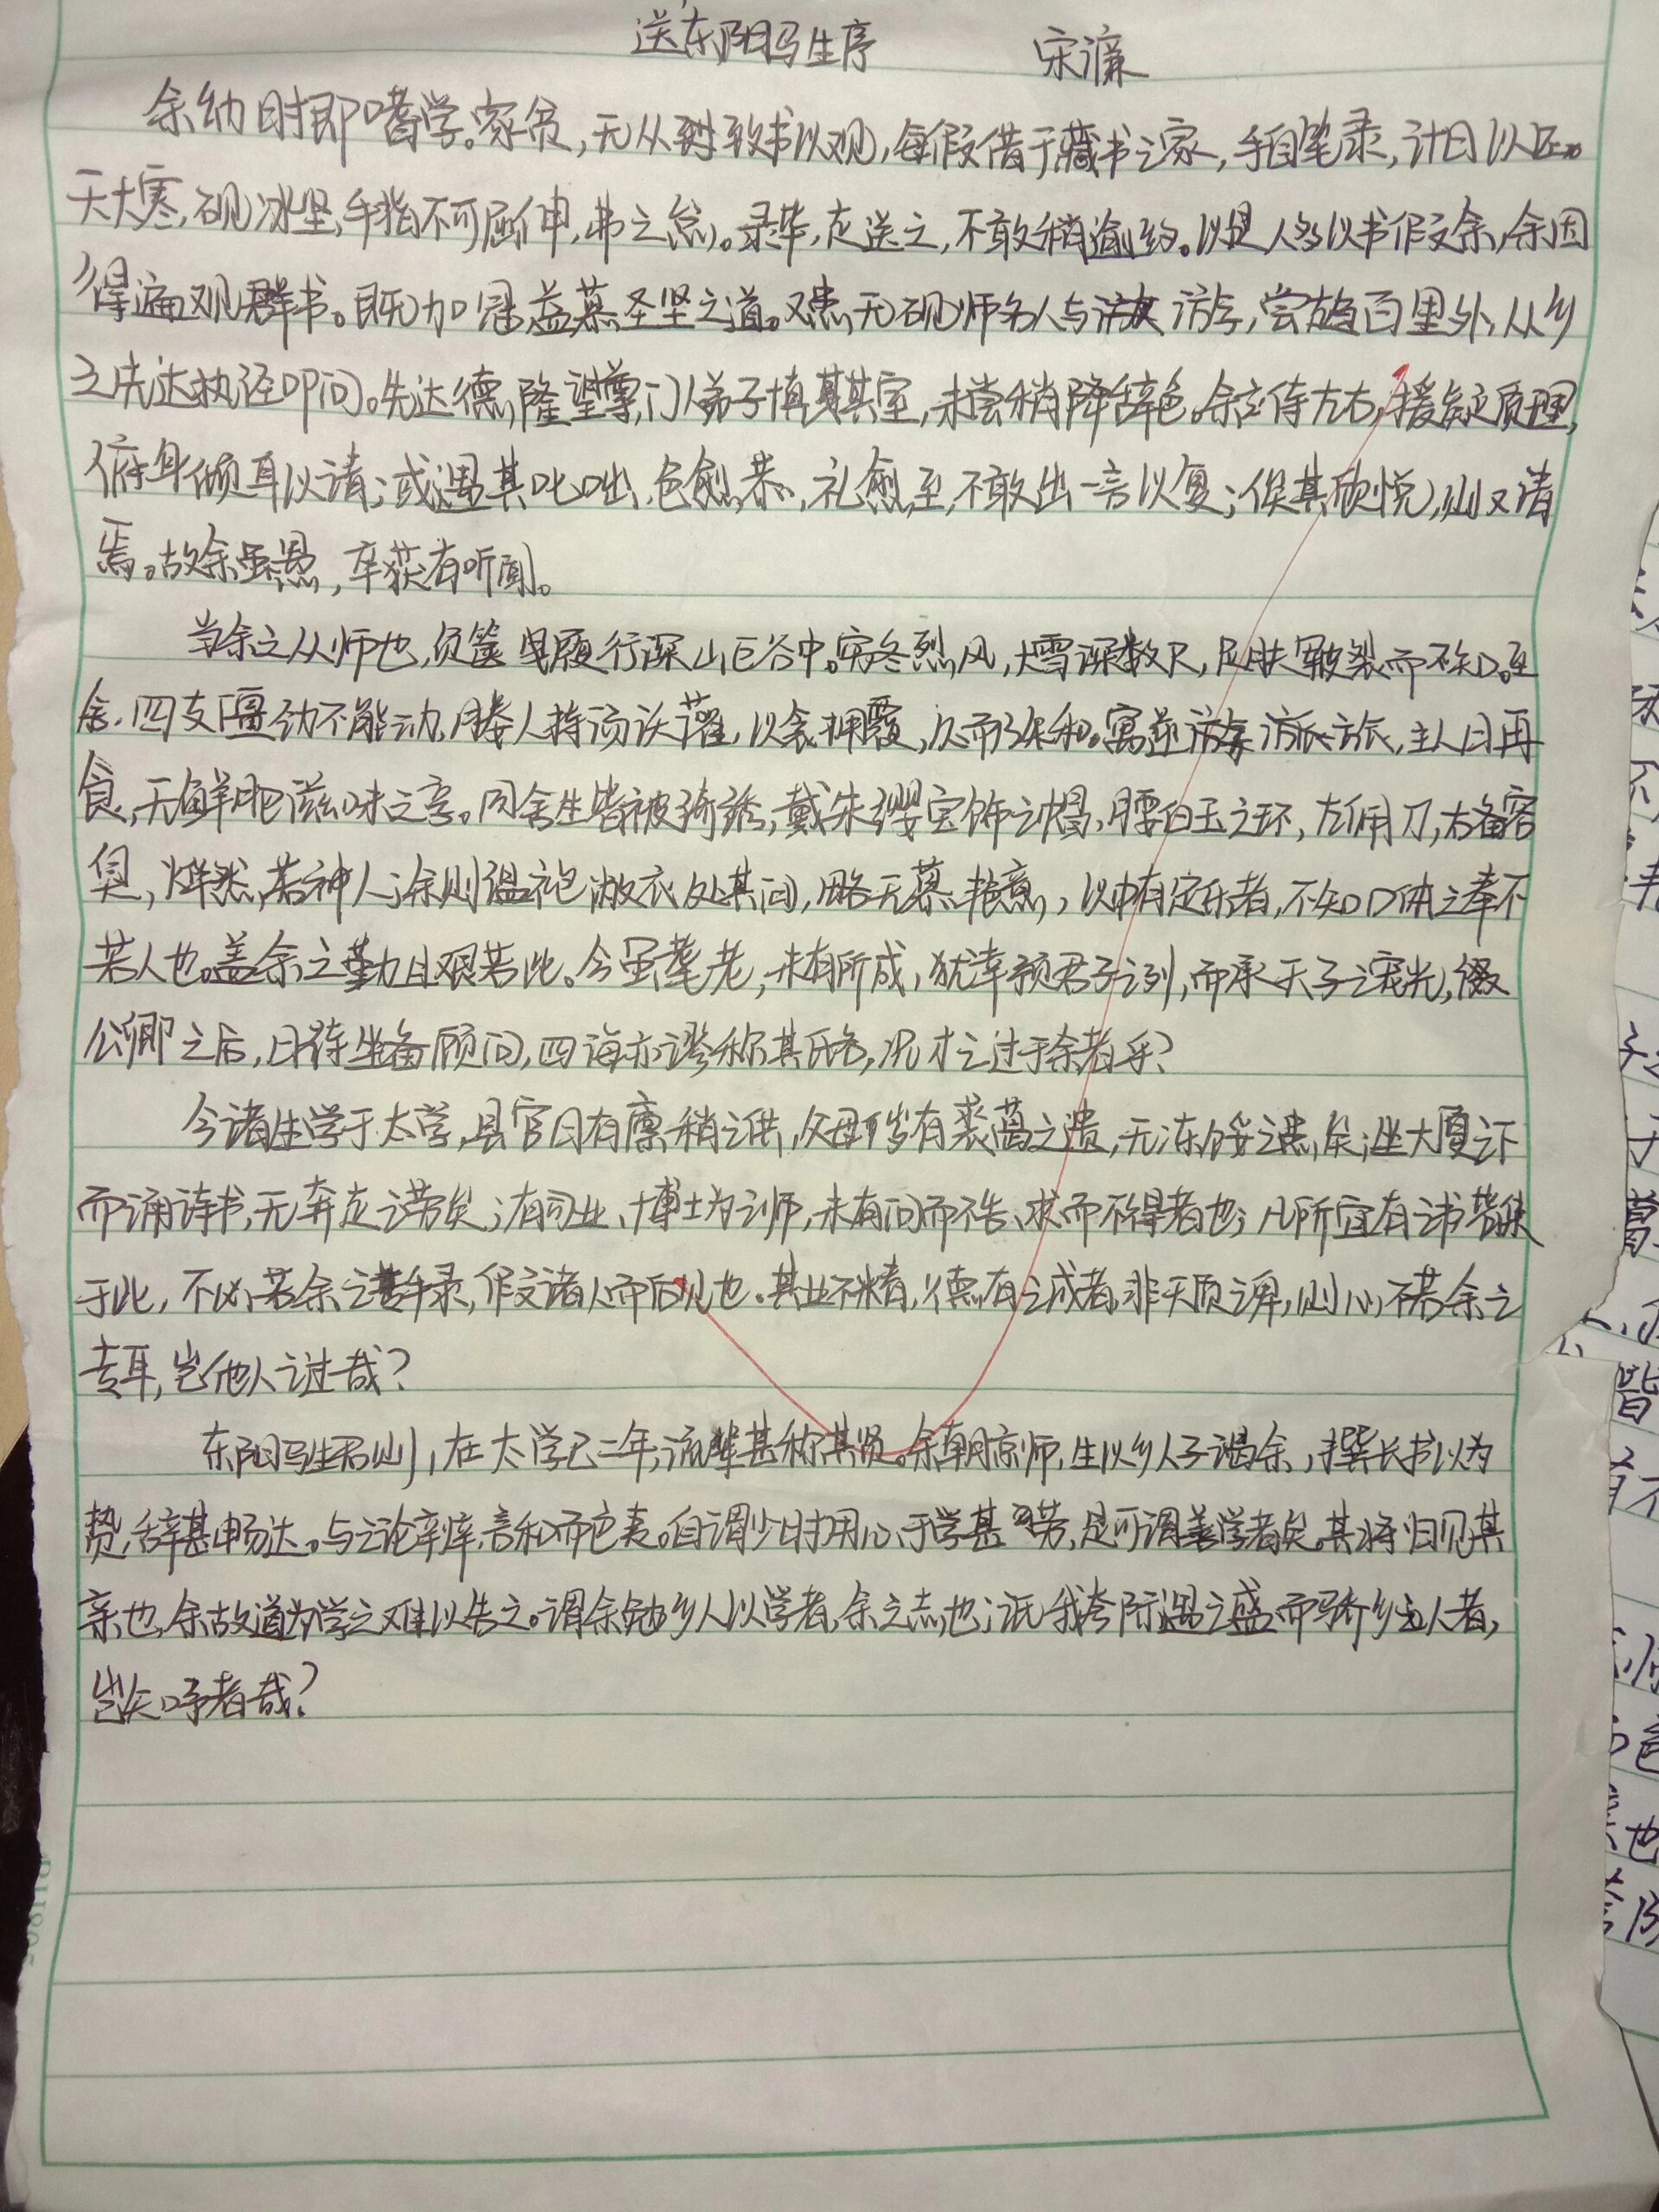 送东阳马生序 宋濂
余幼时即嗜学。家贫,无从致书以观,每假借于藏书之家,手自笔录,计日以还。
天大寒,砚冰坚,手指不可屈伸,弗之怠。录毕,走送之,不敢稍逾约。以是人多以书假余,余因
得遍观群书。既加冠益慕圣贤之道。又患无砚师名人与游,尝趋百里外,从乡
之先达执经叩问。先达德隆望尊,门人弟子填其室,未尝稍降辞色。余立侍左右,援疑质理,
俯身倾耳以请;或遇其叱咄,色愈恭,礼愈至,不敢出一言以复;俟其欣悦,则又请
焉。故余虽愚,卒获有所闻。
当余之从师也,负箧曳屣行深山巨谷中。穷冬烈风,大雪深数尺,足肤皲裂而不知。至
舍,四支僵劲不能动,媵人持汤沃灌,以衾拥覆,久而乃和。寓逆旅,主人日再
食,无鲜肥滋味之享。同舍生皆被绮绣,戴朱缨宝饰之帽,腰白玉之环,左佩刀,右备容
臭,烨然若神人;余则缊袍敝衣处其间,略无慕艳意,以中有足乐者,不知口体之奉不
若人也。盖余之勤且艰若此。今虽耄老,未有所成,犹幸预君子之列,而承天子之宠光,缀
公卿之后,日侍坐备顾问,四海亦谬称其氏名,况才之过于余者乎?
今诸生学于太学,县官日有廪稍之供,父母岁有裘葛之遗,无冻馁之患矣;坐大厦之下
而诵诗书,无奔走之劳矣;有司业、博士为之师,未有问而不告、求而不得者也;凡所宜有之书皆集
于此,不必若余之手录,假诸人而后见也。其业不精,德有之成者,非天质之卑,则心不若余之
专耳,岂他人之过哉?
东阳马生君则,在太学已二年,流辈甚称其贤。余朝京师,生以乡人子谒余,撰长书以为
贽,辞甚畅达。与之论辨,言和而色夷。自谓少时用心于学甚劳,是可谓善学者矣。其将归见其
亲也,余故道为学之难以告之。谓余勉乡人以学者,余之志也;诋我夸际遇之盛而骄乡人者,
岂知予者哉?